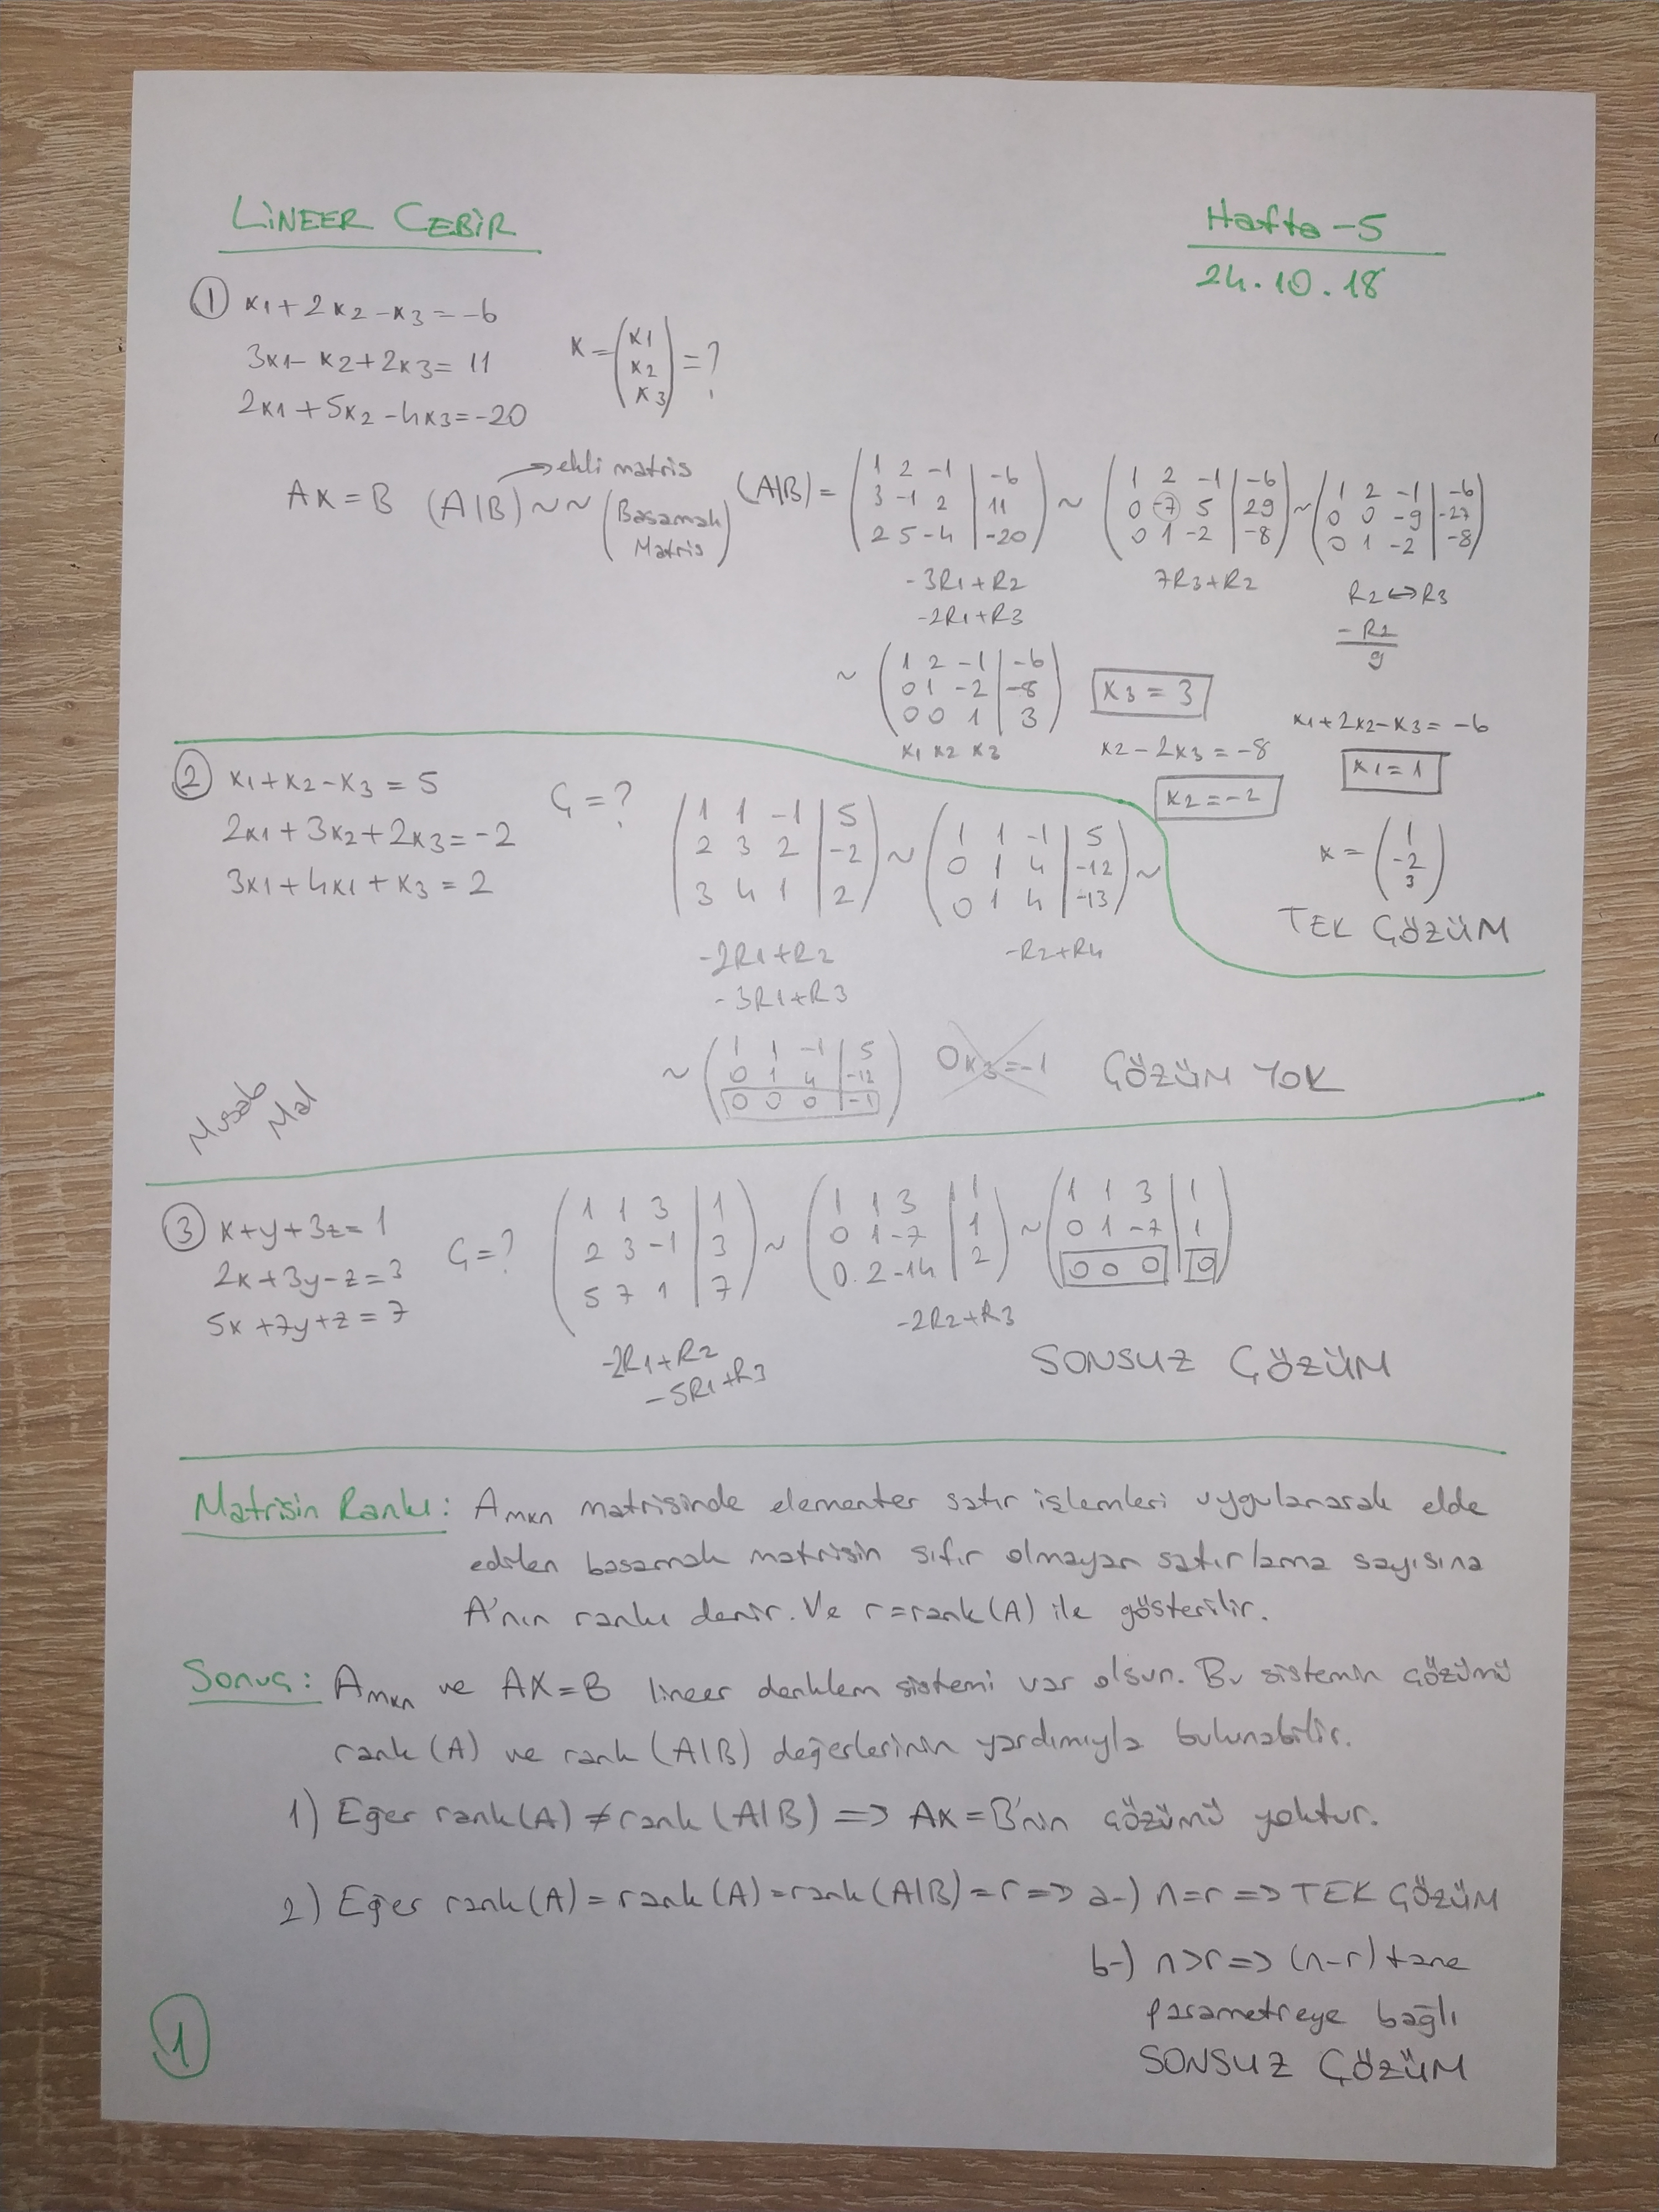 LİNEER CEBİR
Hafta-5
24.10.18
① x1 + 2x2 - x3 = -6
3x1 - x2 + 2x3 = 11
2x1 + 5x2 - 4x3 = -20
x = (x1 x2 x3) = ?
→ ekli matris
AX = B (A|B) ~ ~ (Basamak Matris)
(A|B) = ( 1 2 -1 | -6
3 -1 2 | 11
2 5 -4 | -20 ) ~
-3R1+R2
-2R1+R3
( 1 2 -1 | -6
0 -7 5 | 29
0 1 -2 | -8 ) ~
7R3+R2
( 1 2 -1 | -6
0 0 -9 | -27
0 1 -2 | -8 )
R2↔R3
-R2/9
~ ( 1 2 -1 | -6
0 1 -2 | -8
0 0 1 | 3 )
x1 x2 x3
x3 = 3
x2 - 2x3 = -8
x2 = -2
x1 + 2x2 - x3 = -6
x1 = 1
x = ( 1 -2 3 )
TEK ÇÖZÜM
② x1 + x2 - x3 = 5
2x1 + 3x2 + 2x3 = -2
3x1 + 4x1 + x3 = 2
Ç = ?
( 1 1 -1 | 5
2 3 2 | -2
3 4 1 | 2 ) ~
-2R1+R2
-3R1+R3
( 1 1 -1 | 5
0 1 4 | -12
0 1 4 | -13 ) ~
-R2+R4
~ ( 1 1 -1 | 5
0 1 4 | -12
0 0 0 | -1 )
0x3 = -1
ÇÖZÜM YOK
③ x + y + 3z = 1
2x + 3y - z = 3
5x + 7y + z = 7
Ç = ?
( 1 1 3 | 1
2 3 -1 | 3
5 7 1 | 7 ) ~
-2R1+R2
-5R1+R3
( 1 1 3 | 1
0 1 -7 | 1
0 2 -14 | 2 ) ~
-2R2+R3
( 1 1 3 | 1
0 1 -7 | 1
0 0 0 | 0 )
SONSUZ ÇÖZÜM
Matrisin Rankı: Amxn matrisinde elementer satır işlemleri uygulanarak elde
edilen basamak matrisin sıfır olmayan satırlarına sayısına
A'nın rankı denir. Ve r = rank(A) ile gösterilir.
Sonuç: Amxn ve AX = B lineer denklem sistemi var olsun. Bu sistemin çözümü
rank(A) ve rank(A|B) değerlerinin yardımıyla bulunabilir.
1) Eğer rank(A) ≠ rank(A|B) => AX = B'nin çözümü yoktur.
2) Eğer rank(A) = rank(A) = rank(A|B) = r => a-) n = r => TEK ÇÖZÜM
b-) n > r => (n-r) tane
parametreye bağlı
SONSUZ ÇÖZÜM
1